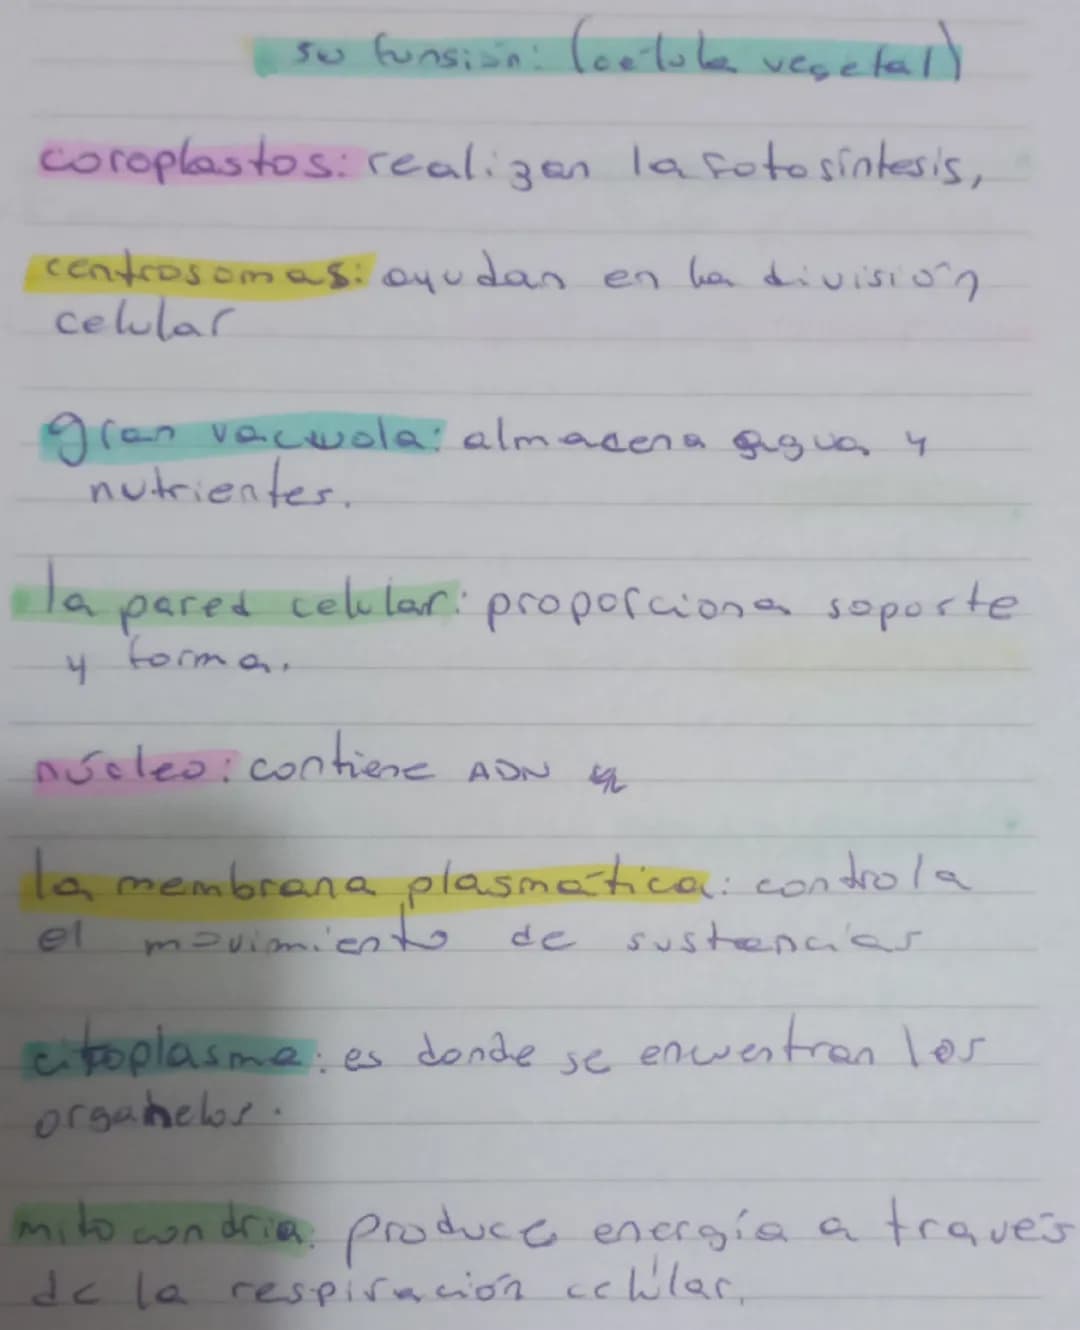 su funsión: (célula vegetal)
coroplastos: realizan la fotosíntesis,
centrosomas: ayudan en la división
celular
gran vacuola: almacena agua y
nutrientes.
la pared celular: proporciona soporte
y forma.
núcleo: contiene ADN
la membrana plasmática: controla
el movimiento de sustancias
citoplasma: es donde se encuentran los
organelos.
mitocondria: produce energía a través
de la respiración celular.